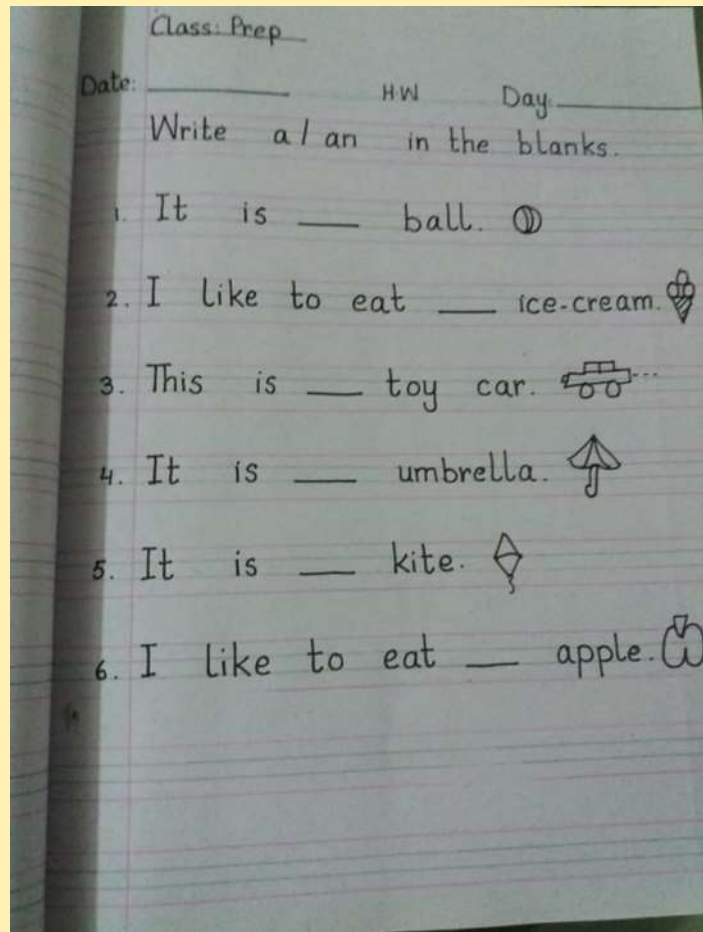 Class: Prep
Date: ________ H.W Day: ________
Write a / an in the blanks.
1. It is ___ ball.
2. I like to eat ___ ice-cream.
3. This is ___ toy car.
4. It is ___ umbrella.
5. It is ___ kite.
6. I like to eat ___ apple.